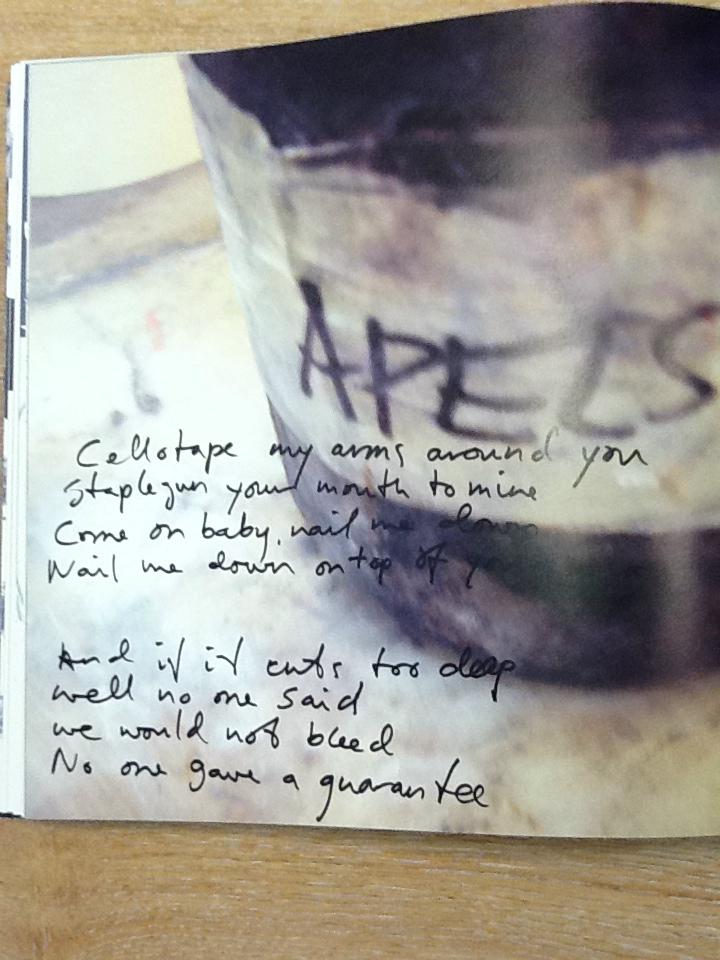 APELS
Cellotape my arms around you
Staplegun your mouth to mine
Come on baby, nail me down
Nail me down on top of you
And if it cuts too deep
well no one said
we would not bleed
No one gave a guarantee